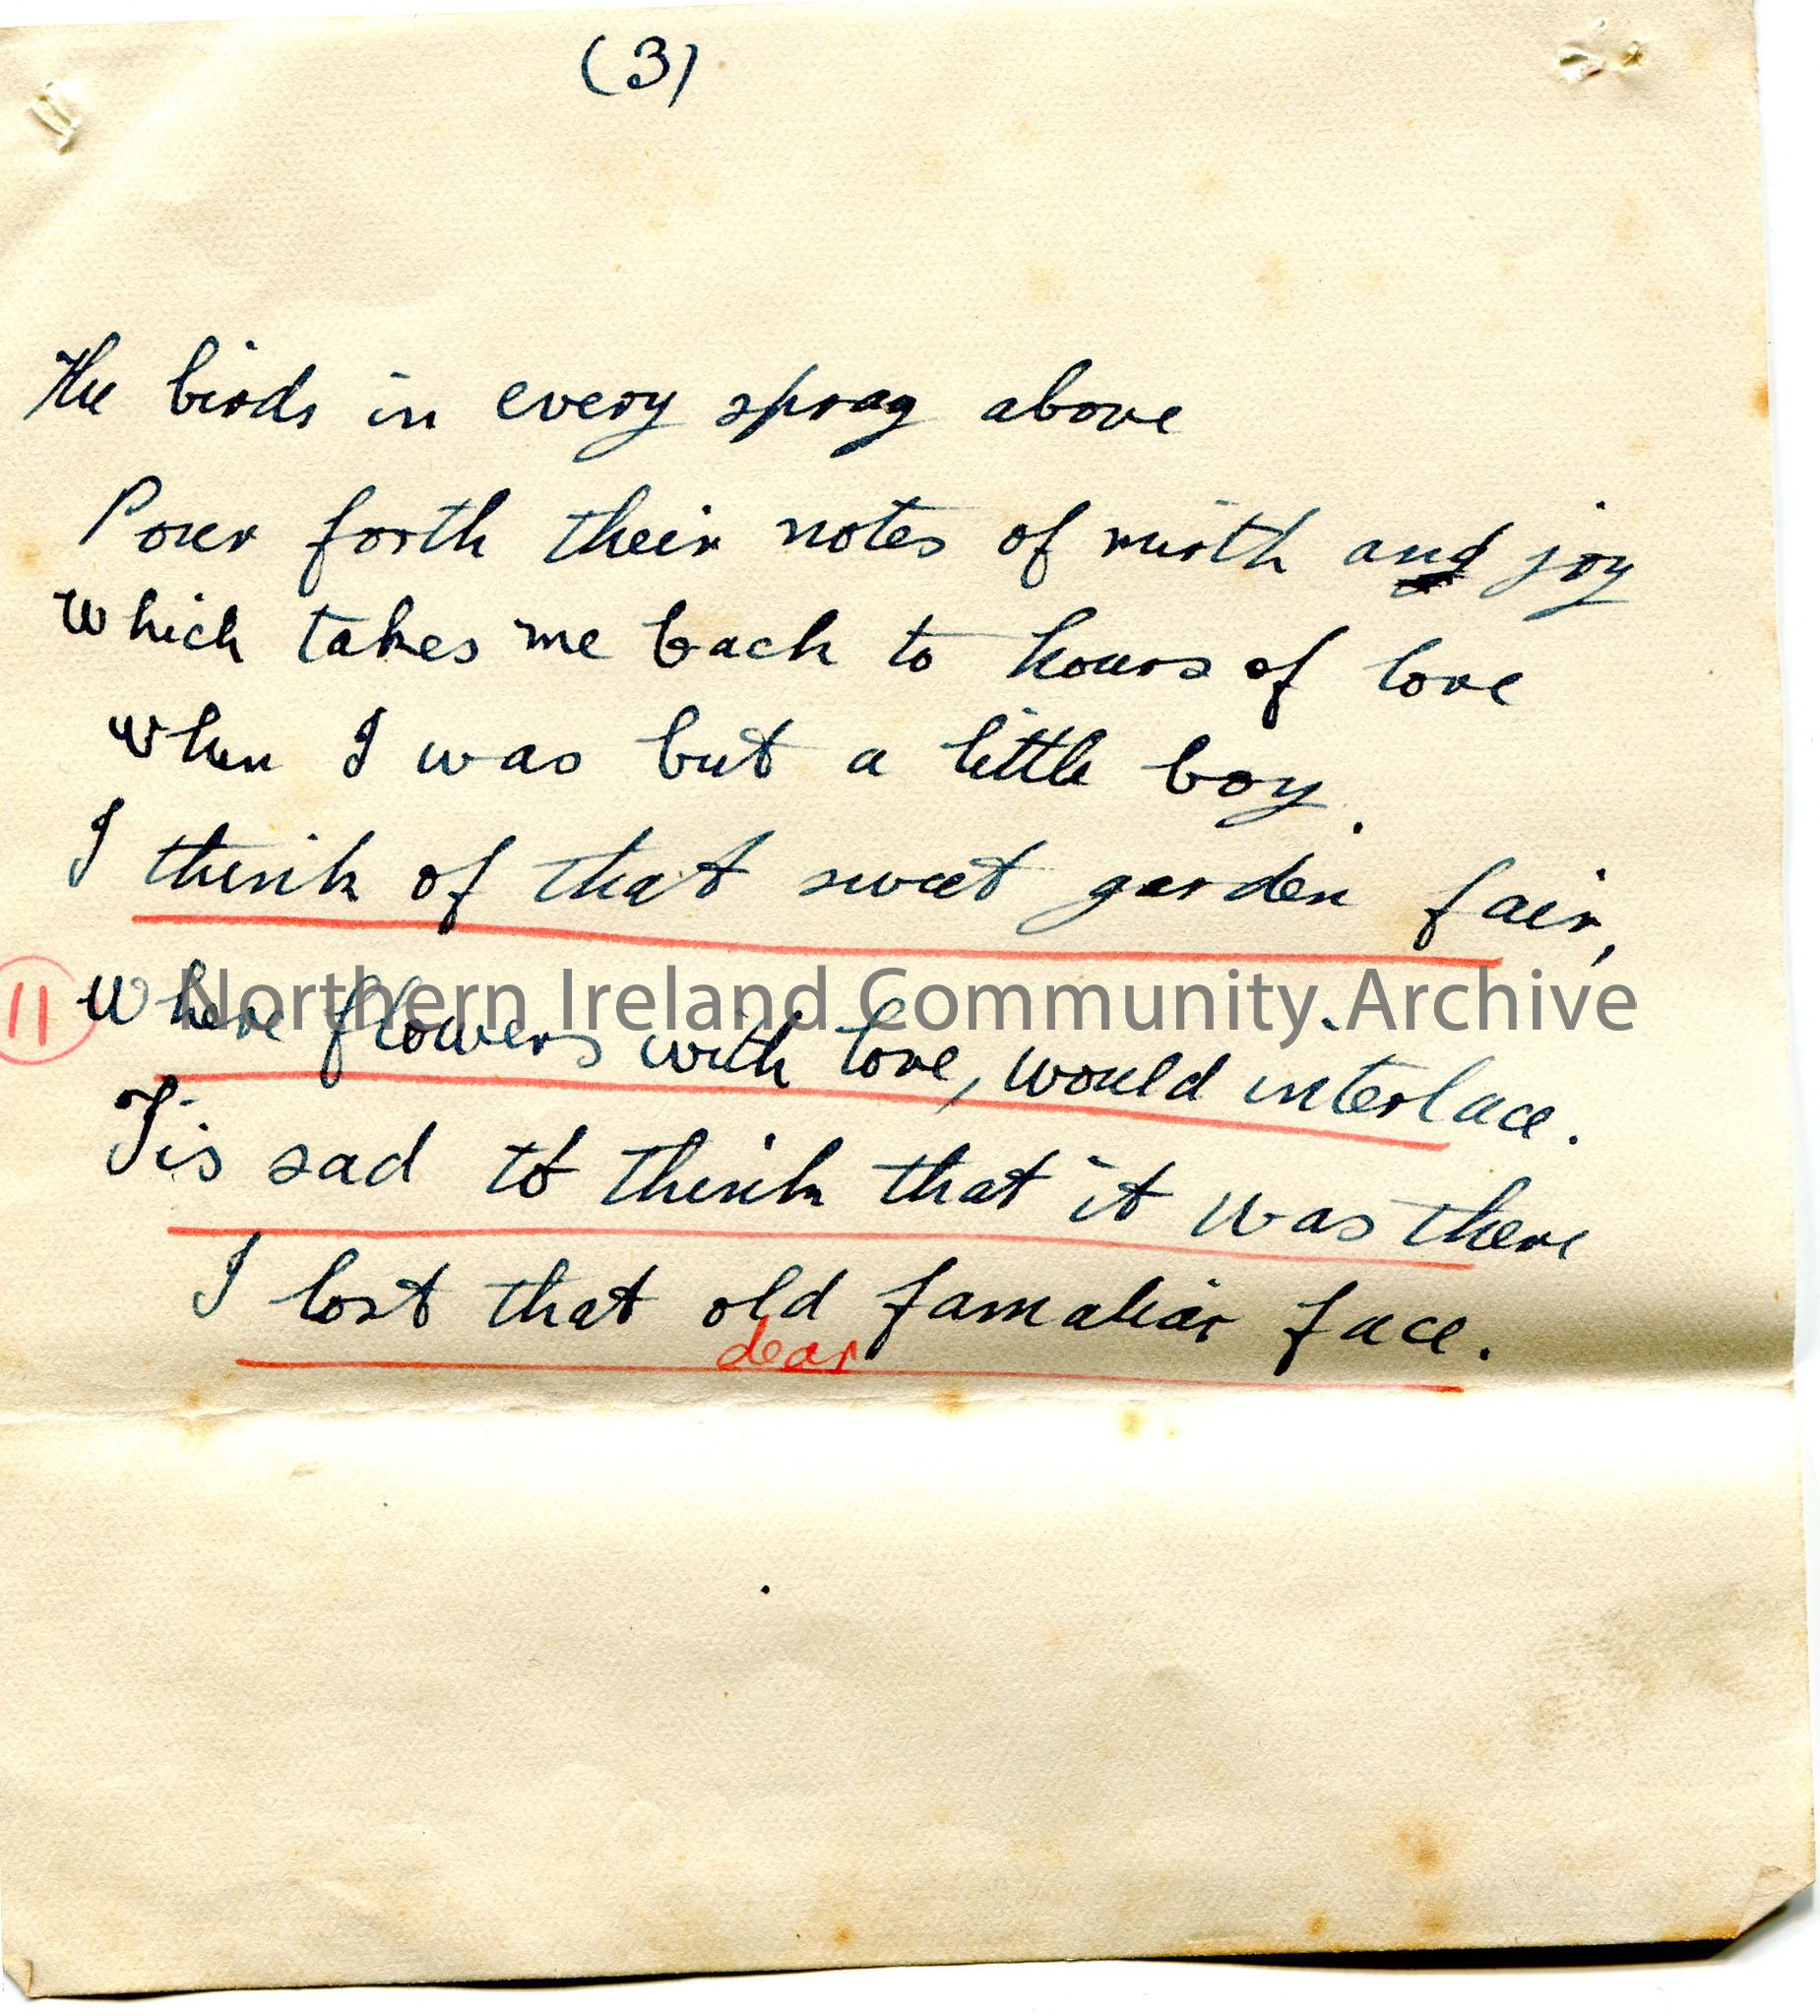 (3)
The birds in every spray above
Pour forth their notes of mirth and joy
Which takes me back to hours of love
When I was but a little boy.
I think of that sweet garden fair,
11 Where flowers with love, would interlace.
Northern Ireland Community Archive
Tis sad to think that it was there
I lost that old famaliar face.
dear